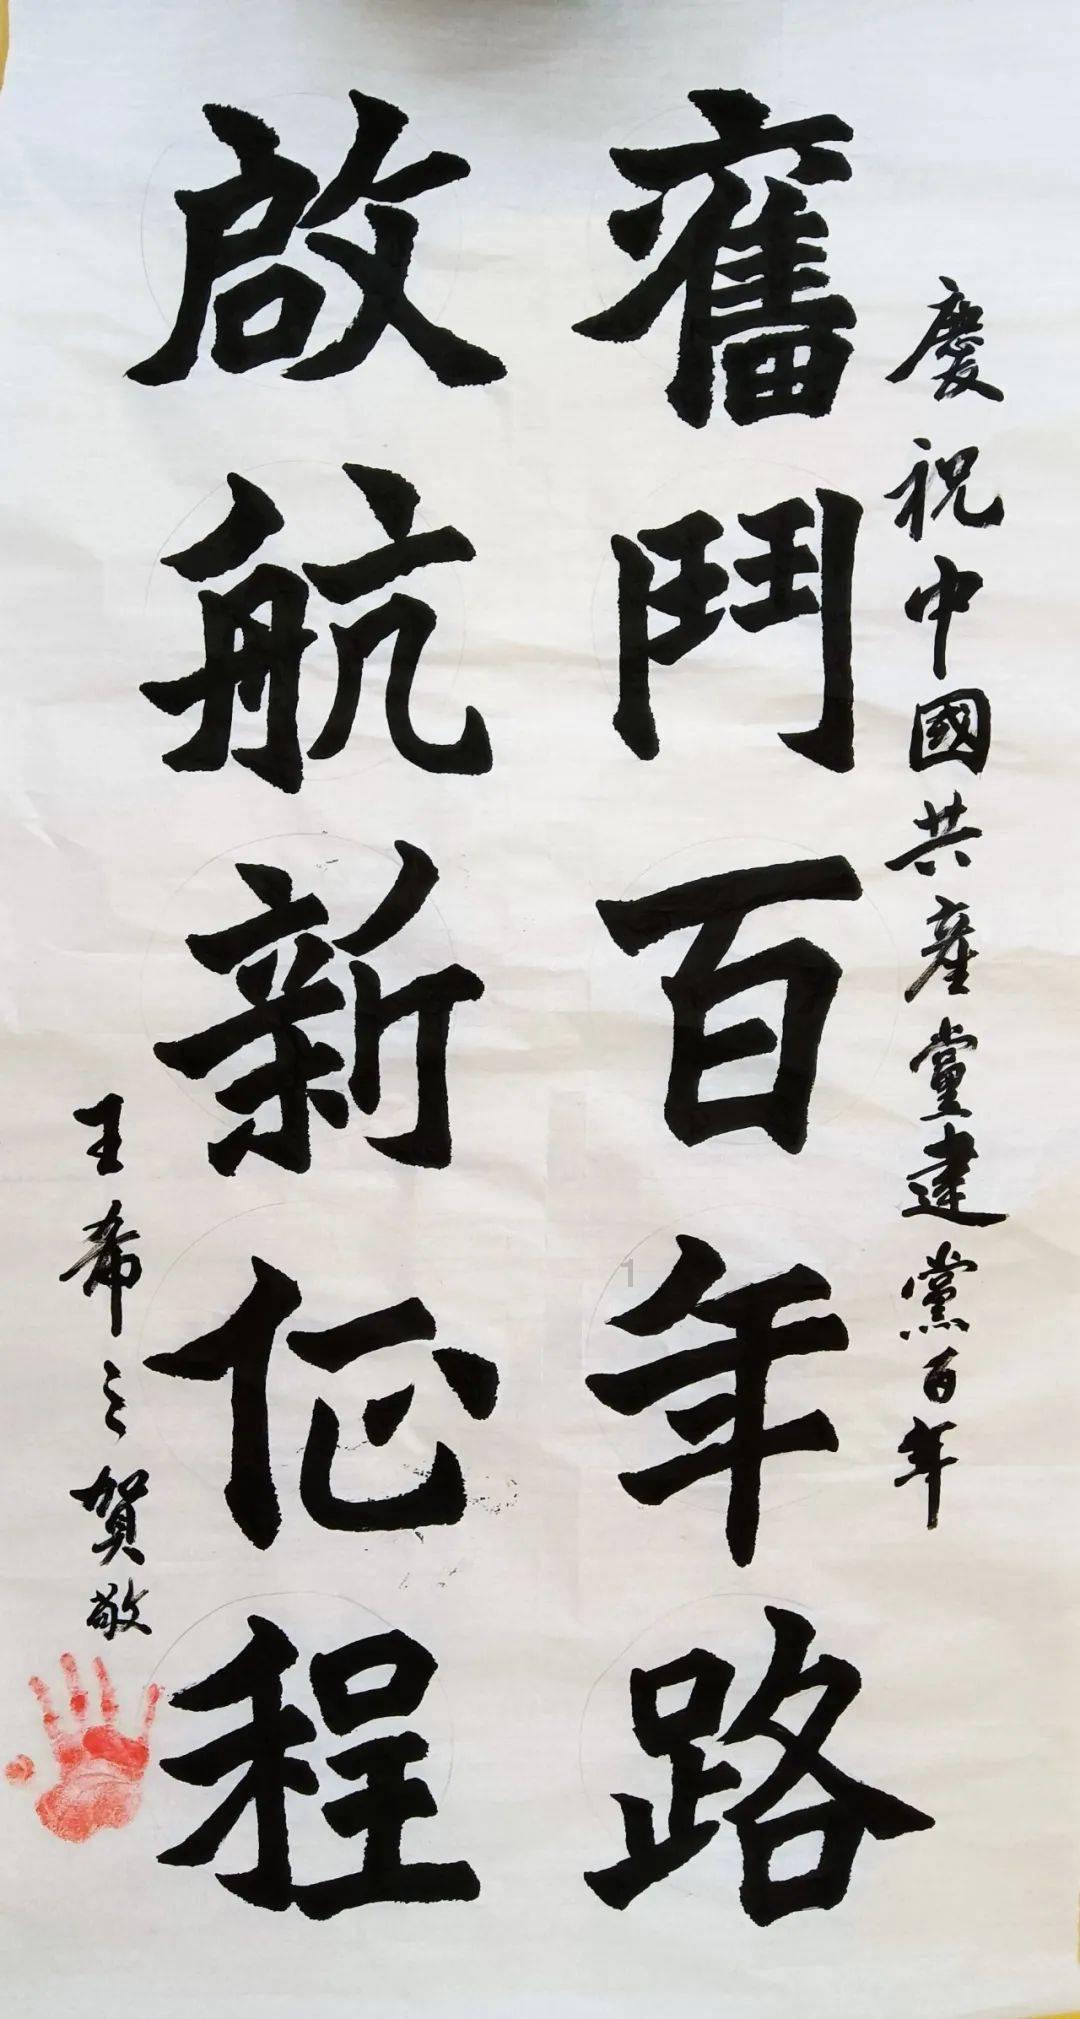 慶祝中國共産黨建黨百年
奮鬥百年路
啟航新征程
王希之賀敬